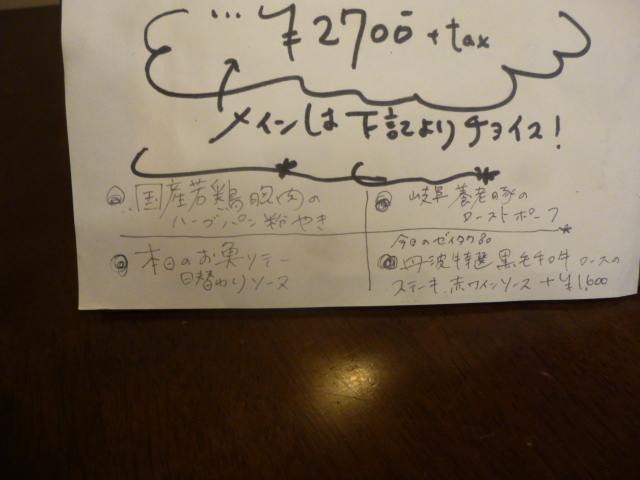 … ¥2700 + tax
メインは下記よりチョイス!
国産若鶏胸肉の
ハーブパン粉やき
岐阜養老豚の
ローストポーク
本日のお魚ソテー
日替わりソース
今日のゼイタク
丹波特選黒毛和牛ロースの
ステーキ、赤ワインソース +¥1,600